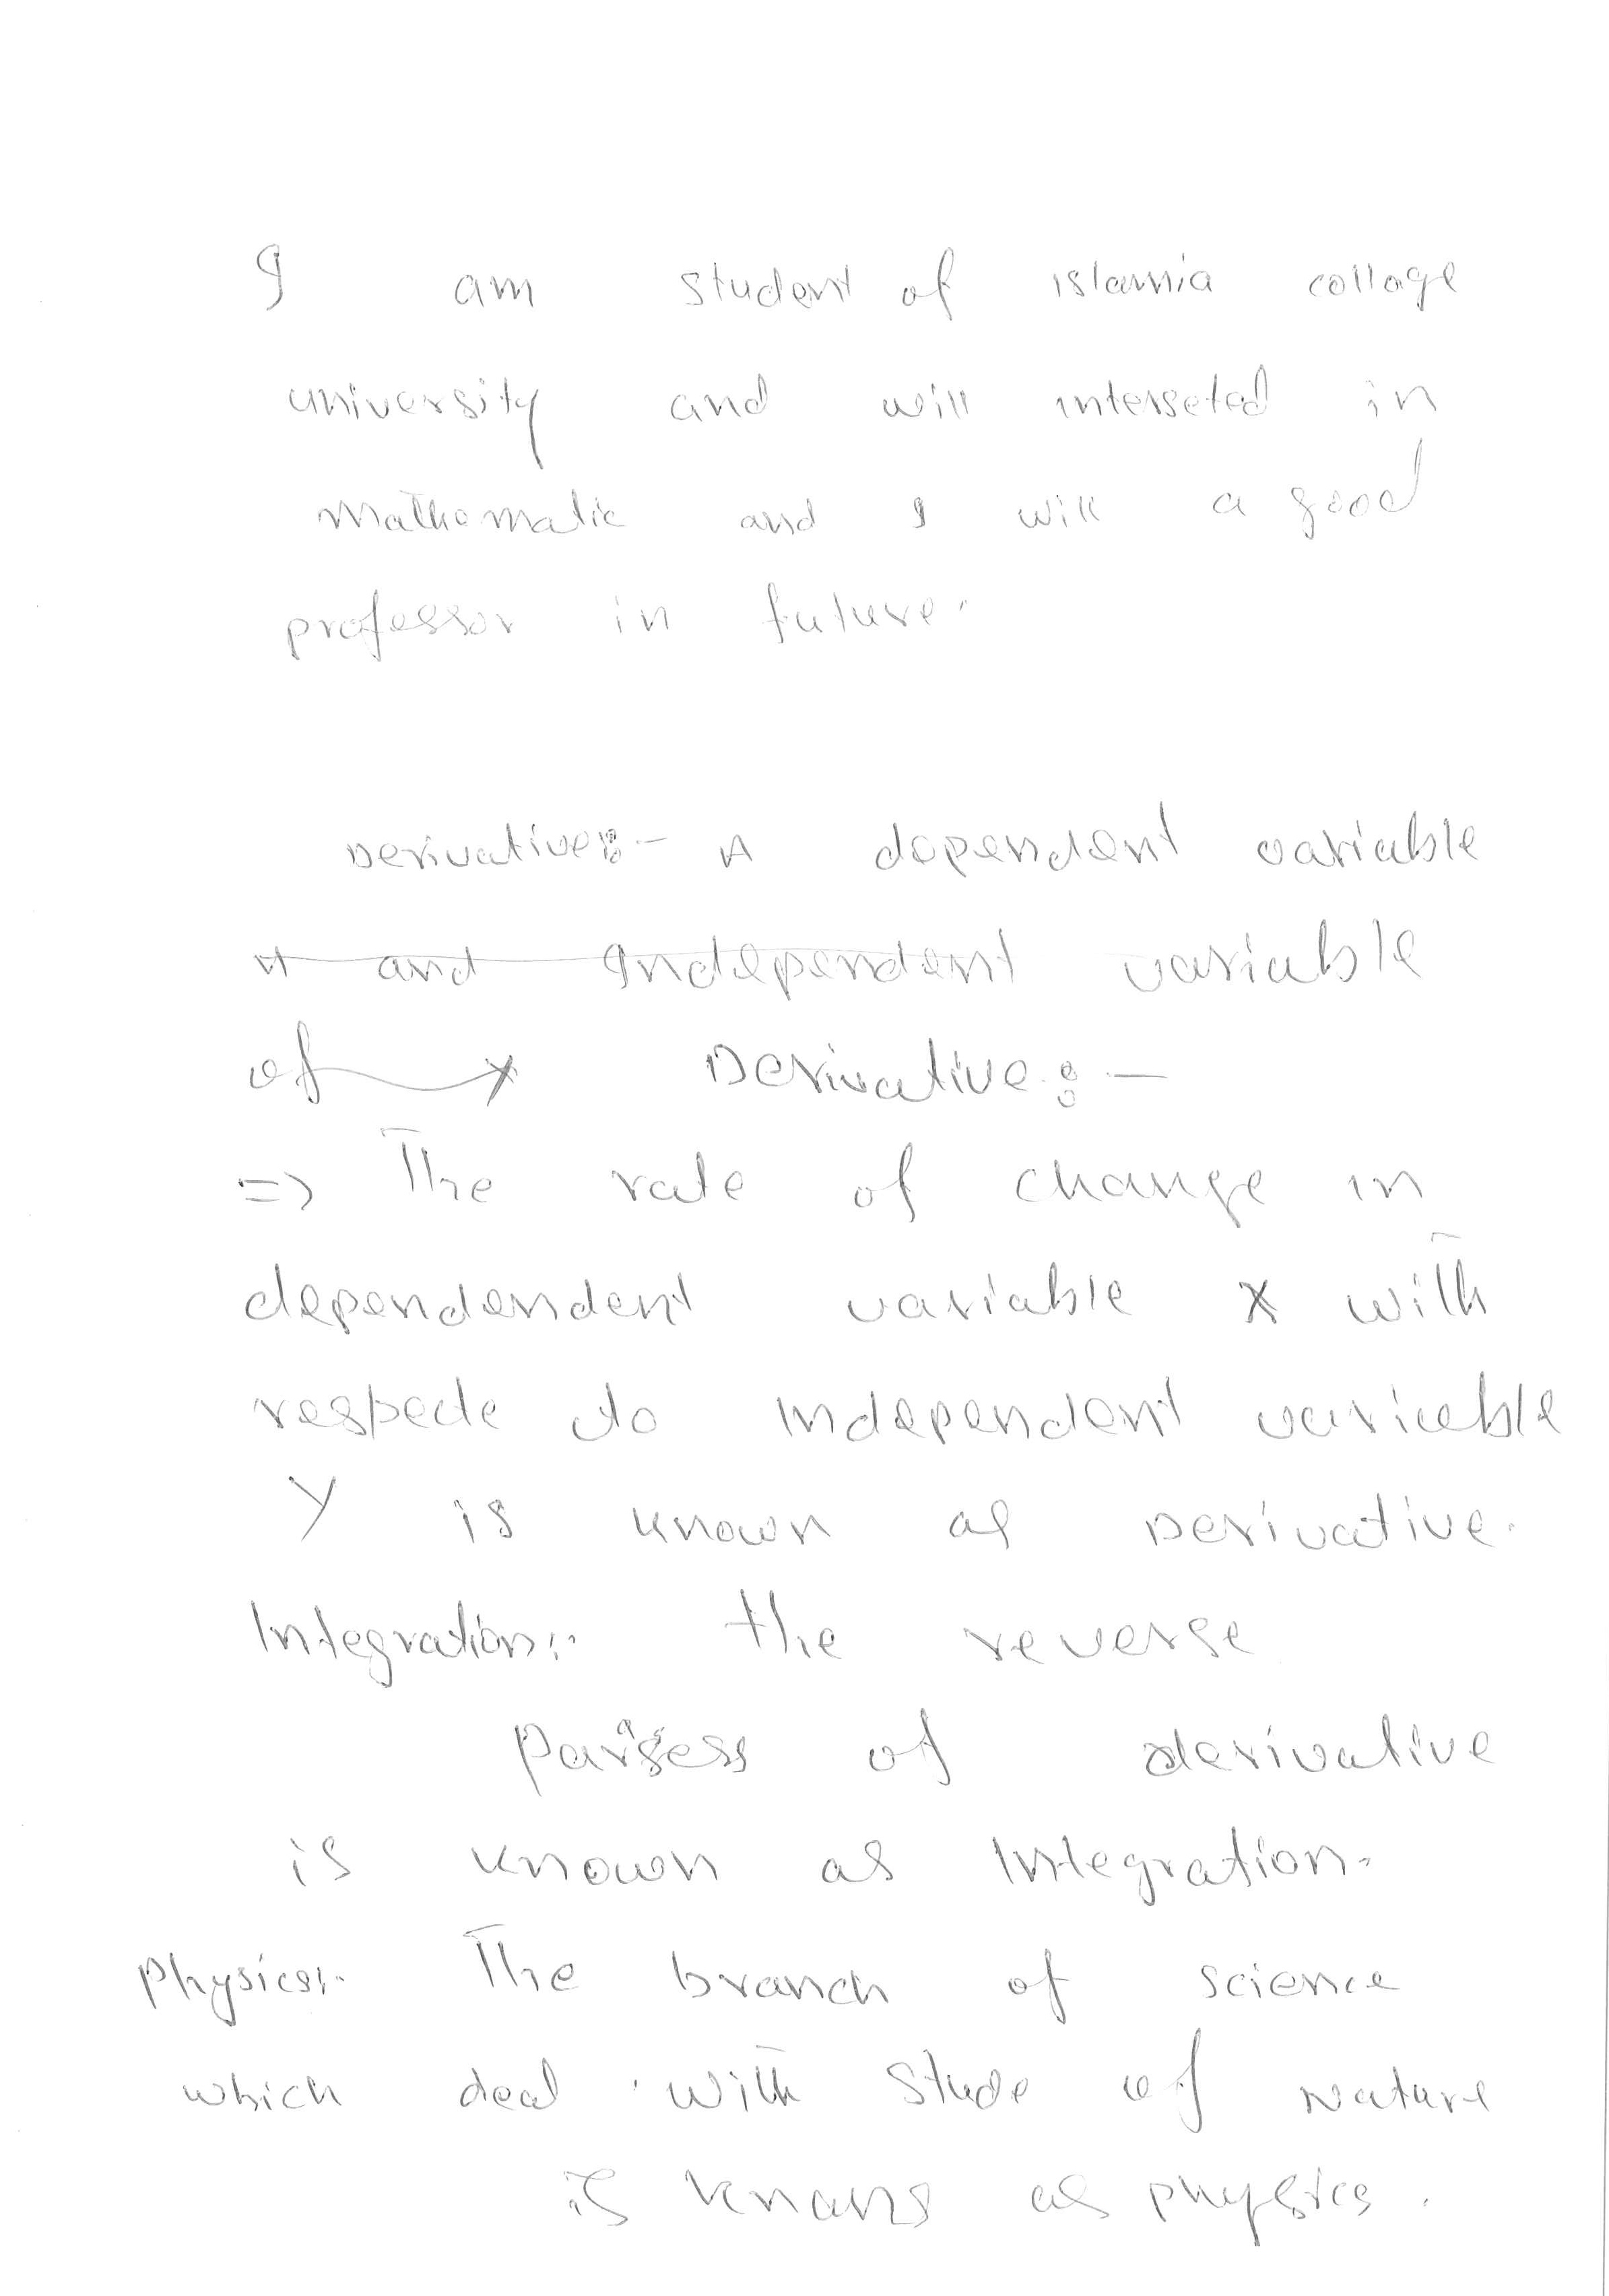 I am student of islamia collage
university and will interseted in
Mathematic and I will a good
professor in future.
Derivative:- A dependent variable
and Independent variable
of x Derivative:-
=> The rate of change in
dependendent variable x with
respecte to Independent variable
Y is known as Derivative.
Integration:- the reverse
of derivative
is known as Integration.
Physics:- The branch of science
which deal with Stude of Nature
is knans as physics.